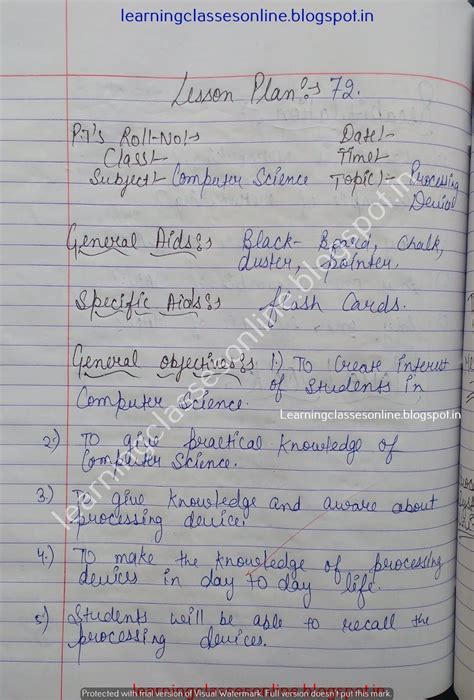 learningclassesonline.blogspot.in
Lesson Plan:- 72.
P.T's Roll-No:- Date:-
Class:- Time:-
Subject:- Computer Science Topic:- Processing
Device
General Aids:- Black-Board, Chalk,
duster, pointer.
Specific Aids:- flash Cards.
General objectives:- 1.) To create interest
of students in
Computer Science.
Learningclassesonline.blogspot.in
2.) To give practical knowledge of
Computer Science.
3.) To give knowledge and aware about
processing device.
4.) To make the knowledge of processing
devices in day to day life.
5.) Students will be able to recall the
processing devices.
learningclassesonline.blogspot.in
learningclassesonline.blogspot.in
Protected with trial version of Visual Watermark. Full version doesn't put this mark.